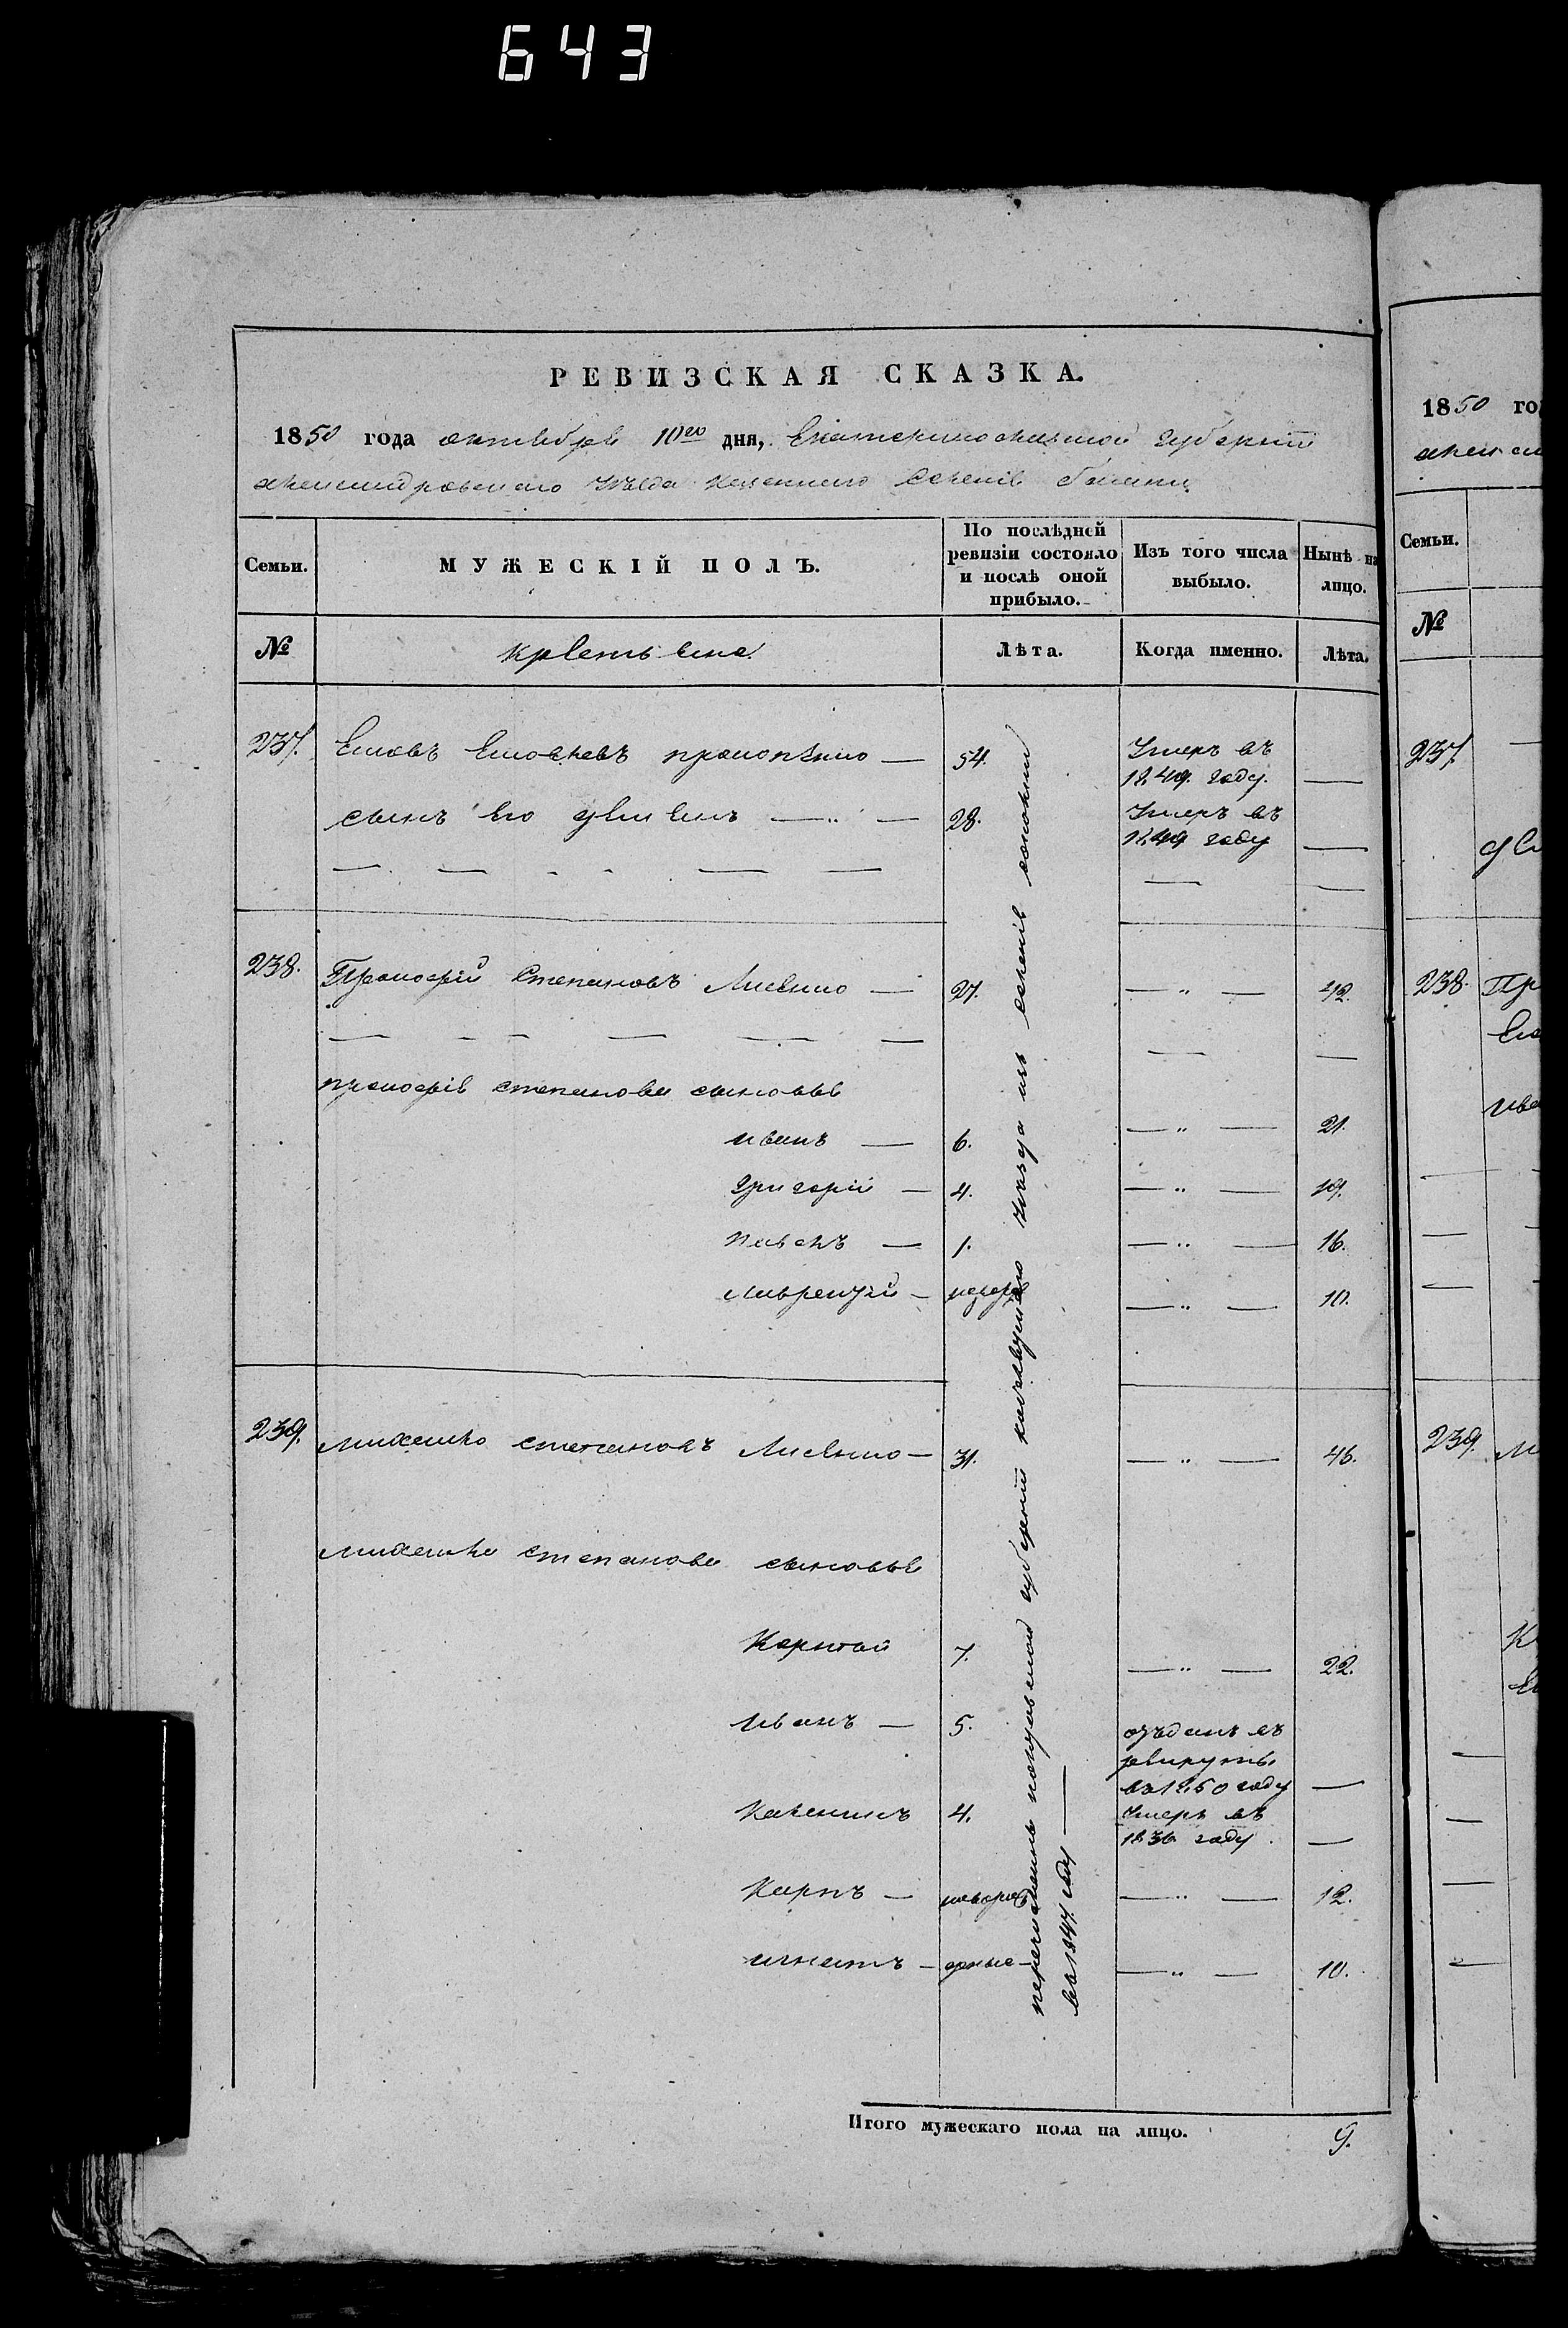 643
РЕВИЗСКАЯ СКАЗКА.
1850 года октября 10го дня, Екатеринославской губернии
александровского уезда казенного селенія
Семьи.
МУЖЕСКІЙ ПОЛЪ.
По послѣдней ревизіи состояло и послѣ оной прибыло.
Изъ того числа выбыло.
Нынѣ на лицо.
№
крестьяне
Лѣта.
Когда именно.
Лѣта.
237. 54. Умеръ въ 1849. году. —
сынъ его 28. Умеръ въ 1849 году —
238. Прокофій Степановъ 27. — " — 42.
прокофія степанова сыновья
иванъ — 6. — " — 21.
григорій — 4. — " — 19.
павелъ — 1. — " — 16.
лаврентій — — " — 10.
239. михайло степановъ 31. — " — 46.
михайла степанова сыновья
Корнтай 7. — " — 22.
иванъ — 5. отданъ въ рекруты въ 1850 году —
4. Умеръ въ 1836 году —
Карпъ — новорож — " — 12.
игнатъ — дъные — " — 10.
перечислены полтавской губерніи уезда изъ селенія
въ 1847. году —
Итого мужескаго пола на лицо. 9.
1850 го
Семьи.
№
237.
238. Пр
ива
239. м